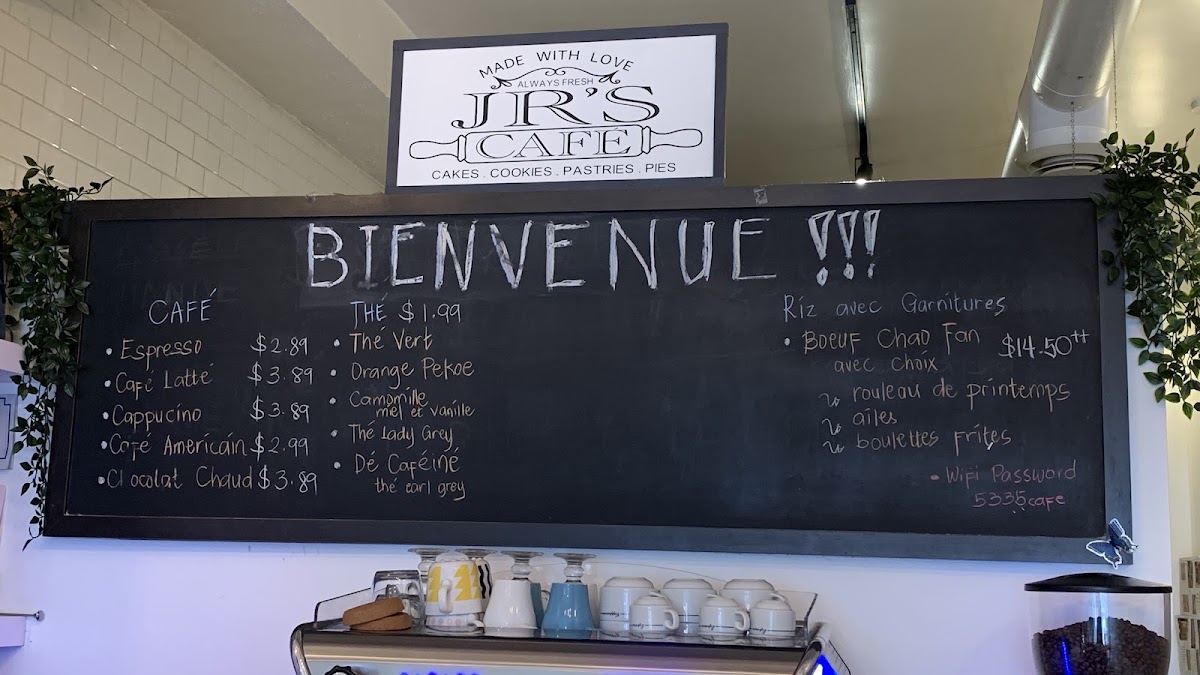 MADE WITH LOVE
ALWAYS FRESH
JR'S
CAFE
CAKES . COOKIES . PASTRIES . PIES
BIENVENUE !!!
CAFÉ
• Espresso $2.89
• Café Latté $3.89
• Cappucino $3.89
• Café Americain $2.99
• Chocolat Chaud $3.89
THÉ $1.99
• Thé Vert
• Orange Pekoe
• Camomille
miel et vanille
• Thé Lady Grey
• Dé Caféiné
thé earl grey
Riz avec Garnitures
• Boeuf Chao Fan $14.50++
avec choix
rouleau de printemps
ailes
boulettes frites
• Wifi Password
5335cafe